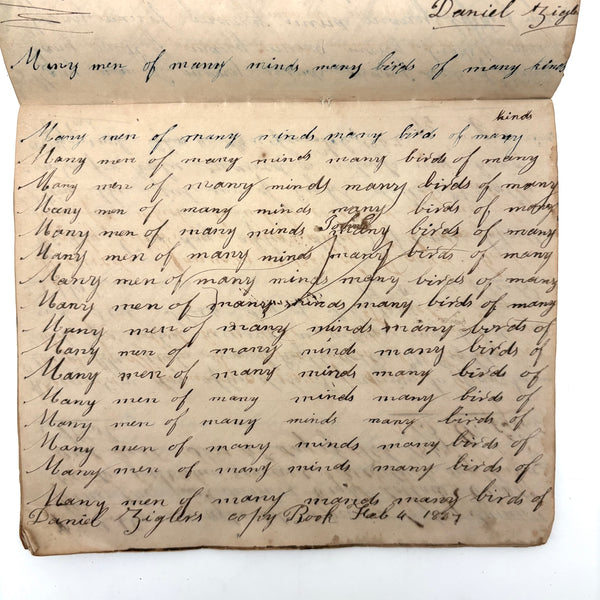 Daniel Zigle
Many men of many minds many birds of many kind
kinds
Many men of many minds many bird of many
Many men of many minds many birds of many
Many men of many minds many birds of many
Many men of many minds many birds of many
Many men of many minds many birds of many
Many men of many minds many birds of many
Many men of many minds many birds of many
Many men of many minds many birds of many
Many men of many minds many birds of
Many men of many minds many birds of
Many men of many minds many birds of
Many men of many minds many birds of
Many men of many minds many birds of
Many men of many minds many birds of
Many men of many minds many birds of
Many men of many minds many birds of
Daniel Ziglers copy Book Feb 4